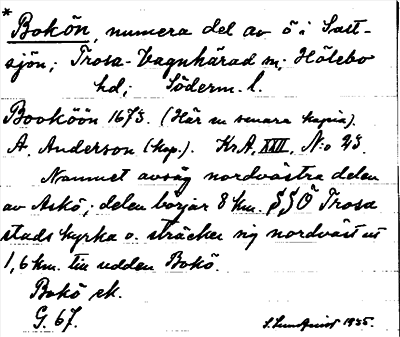 * Bokön, numera del av ö i Salt-
sjön; Trosa-Vagnhärad sn; Hölebo
hd; Söderm. l.
Booköön 1673. (Här en senare kopia).
A. Anderson (kop.). KrA, XXII, N:o 23.
Namnet avsåg nordvästra delen
av Askö; delen börjar 8 km. SSÖ Trosa
stads kyrka o. sträcker sig nordväst ut
1,6 km. till udden Bokö.
Bokö ek.
G. 67.
S. Lundqvist 1935.